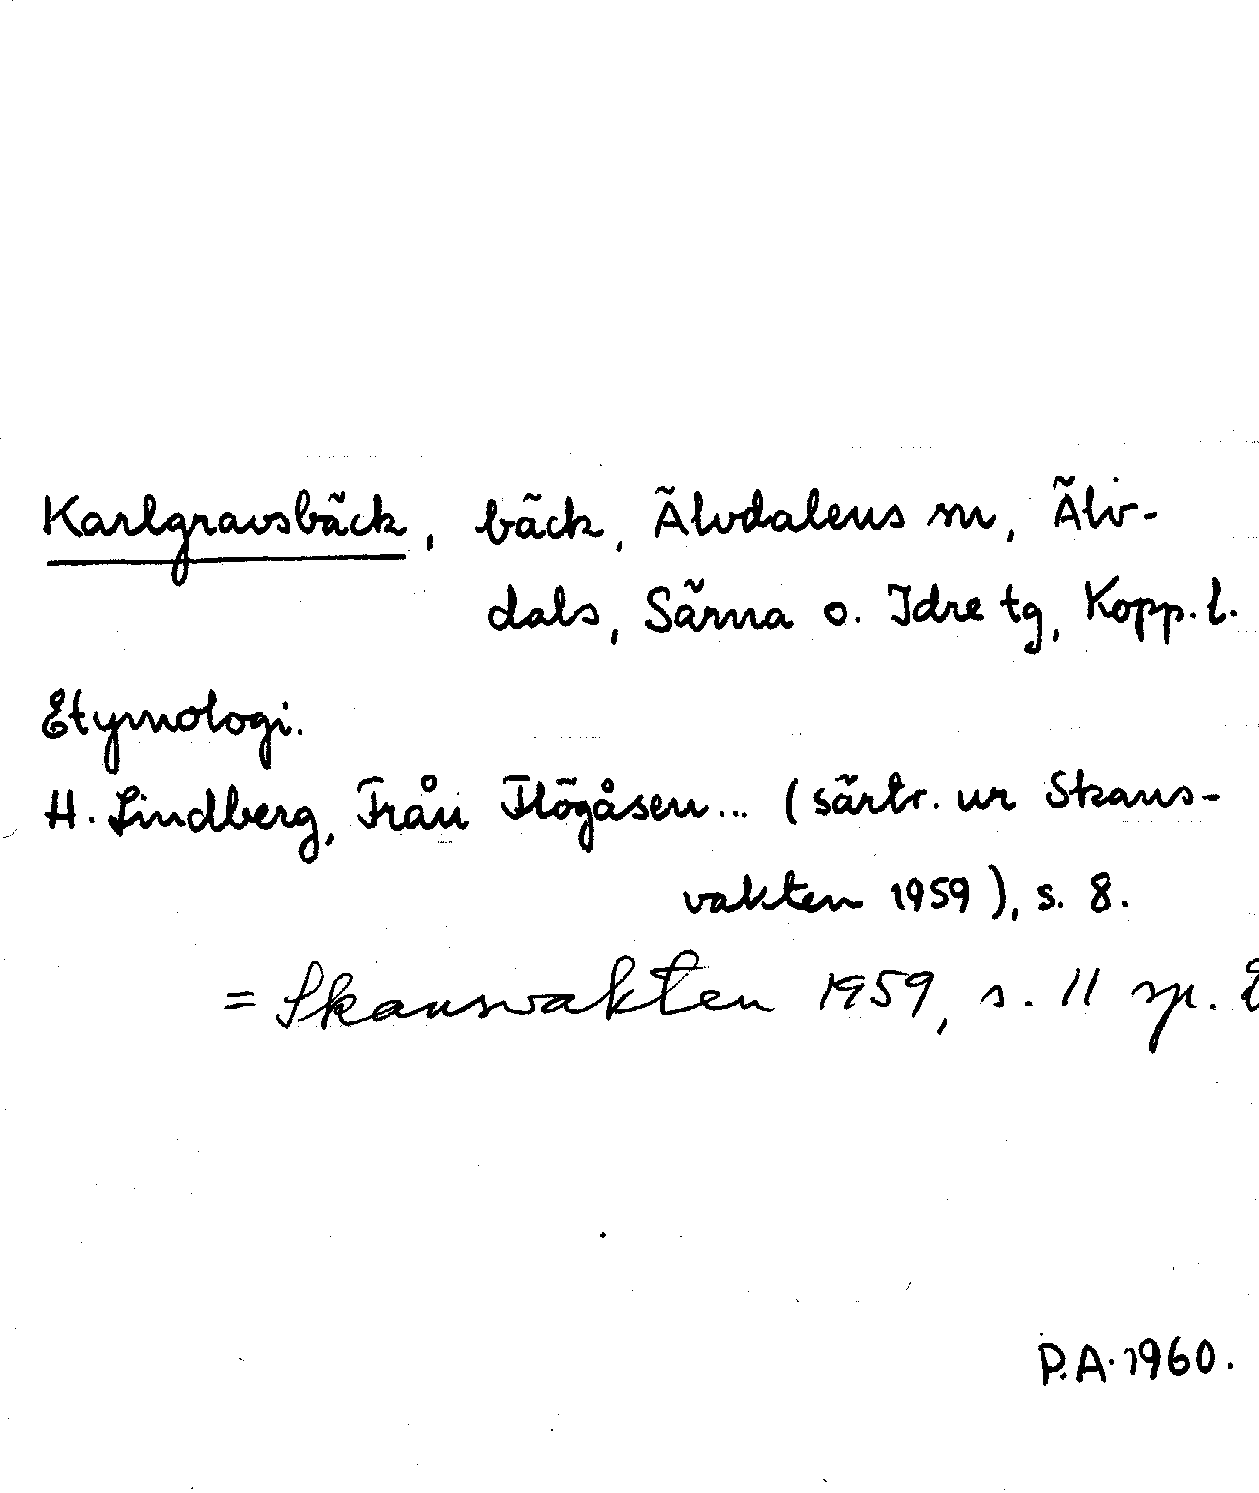 Karlgravsbäck, bäck, Älvdalens sn, Älv-
dals, Särna o. Idre tg, Kopp. l.
Etymologi.
H. Lindberg, Från Flögåsen... (särtr. ur Skans-
vakten 1959), s. 8.
= Skansvakten 1959, s. 11 sp.
P.A. 1960.